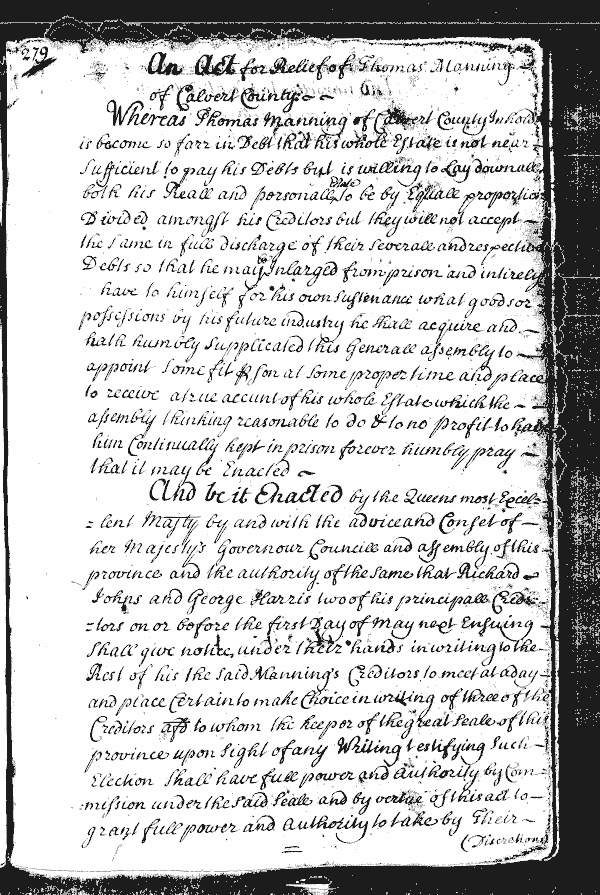 279
An Act for Relief of Thomas Manning
of Calvert County
Whereas Thomas Manning of Calvert County Inhold
is become so farr in Debt that his whole Estate is not near
Sufficient to pay his Debts but is willing to Lay down all
both his Reall and personall Estate To be by Equall proportion
Divided amongst his Creditors but they will not accept
the Same in full discharge of their Severall and respective
Debts so that he may Inlarged from prison and intirely
have to himself for his own Sustenance what goods or
possessions by his future industry he shall acquire and
hath humbly Supplicated this Generall assembly to
appoint Some fit pson at Some proper time and place
to receive a true accunt of his whole Estate which the
assembly thinking reasonable to do & to no profit to had
him Continually kept in prison forever humbly pray
that it may be Enacted
And be it Enacted by the Queens most Excel-
lent Majty by and with the advice and Conset of
her Majesty's Governour Councill and assembly of this
province and the authority of the Same that Richard
Johns and George Harris two of his principall Credi-
tors on or before the first Day of May next Ensuing
Shall give notice under their hands in writing to the
Rest of his the Said Manning's Creditors to meet at a day
and place Certain to make Choice in writing of three of the
Creditors afd to whom the keeper of the great Seale of this
province upon Sight of any Writing testifying Such
Election Shall have full power and Authority by Com-
mission under the Said Seale and by vertue of this act to
grant full power and Authority to take by Their
(Discretions